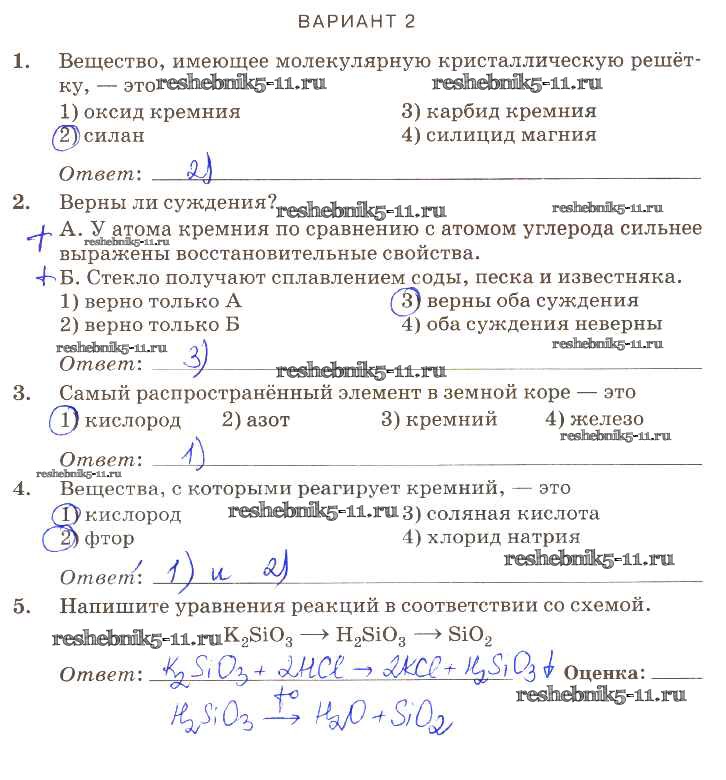 ВАРИАНТ 2
1. Вещество, имеющее молекулярную кристаллическую решёт-
ку, — это reshebnik5-11.ru reshebnik5-11.ru
1) оксид кремния 3) карбид кремния
2) силан 4) силицид магния
Ответ: 2)
2. Верны ли суждения? reshebnik5-11.ru reshebnik5-11.ru
+ А. У атома кремния по сравнению с атомом углерода сильнее
reshebnik5-11.ru
выражены восстановительные свойства.
+ Б. Стекло получают сплавлением соды, песка и известняка.
1) верно только А 3) верны оба суждения
2) верно только Б 4) оба суждения неверны
reshebnik5-11.ru reshebnik5-11.ru
Ответ: 3) reshebnik5-11.ru
3. Самый распространённый элемент в земной коре — это
1) кислород 2) азот 3) кремний 4) железо
reshebnik5-11.ru
Ответ: 1)
reshebnik5-11.ru
4. Вещества, с которыми реагирует кремний, — это
1) кислород reshebnik5-11.ru 3) соляная кислота
2) фтор 4) хлорид натрия
reshebnik5-11.ru
Ответ: 1) и 2)
5. Напишите уравнения реакций в соответствии со схемой.
reshebnik5-11.ru K₂SiO₃ → H₂SiO₃ → SiO₂
Ответ: K₂SiO₃ + 2HCl → 2KCl + H₂SiO₃↓ Оценка:
reshebnik5-11.ru
H₂SiO₃ →t° H₂O + SiO₂